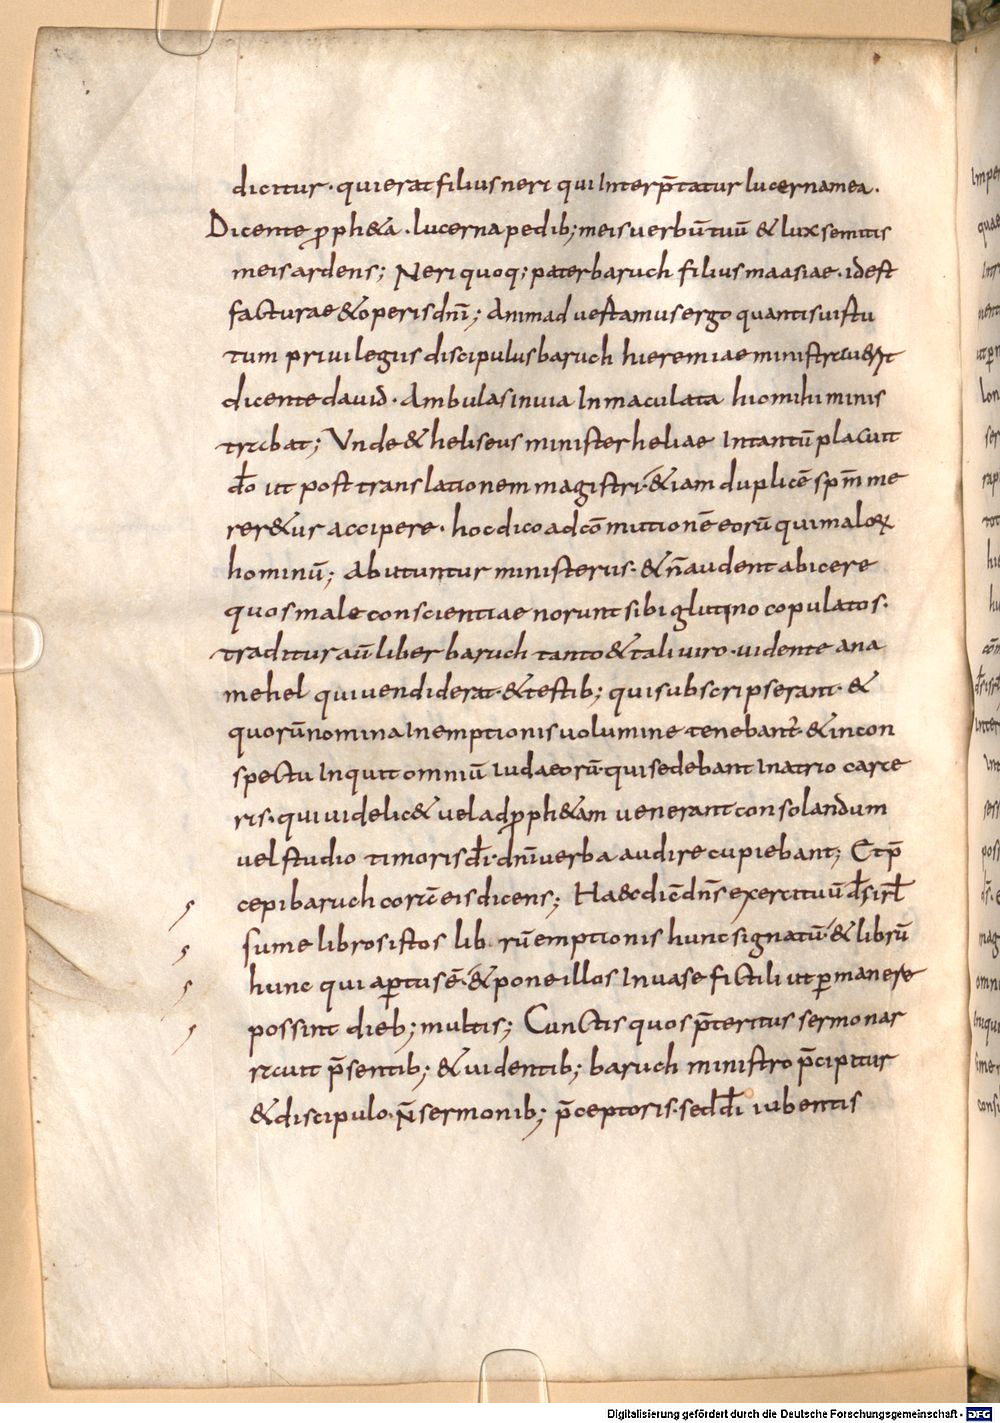 dicitur· qui erat filius neri qui Interp̄tatur lucerna mea·
Dicente p̱ph&a· lucerna pedib; meis uerbū tuū & lux semitis
meis ardens; Neri quoq; pater baruch filius maasiae· idest
facturae & operis dn̄i; Animaduestamus ergo quantis uistu
tum priuilegiis discipulus baruch hieremiae ministrau&it
dicente dauid· Ambulas In uia Inmaculata hic mihi minis
trabat; Vnde & heliseus minister heliae Intantū placuit
do̅ ut post translationem magistri· & iam duplicē sp̄m me
rer&ur accipere· hoc dico ad cōmutionē eorū qui maloꝝ
hominū; Abutuntur ministeriis· & n̄ audent abicere
quos male conscientiae norunt sibi glutino copulatos·
traditur aū liber baruch tanto & tali uiro· uidente ana
mehel qui uendiderat· & testib; qui subscripserant· &
quorū nomina In emptionis uolumine tenebant̄· & incon
spectu Inquit omniū iudaeorū· qui sedebant In atrio carce
ris· qui uidelic& uel ad p̱ph&am uenerant consolandum
uel studio timoris di̅· dn̄i uerba audire cupiebant; Et p̄
cepi baruch corā eis dicens; Haec dic̄ dn̄s exercituū ds̅ isrl̅
sume libros istos lib rū emptionis hunc signatū· & librū
hunc qui ap̱tus ē· & pone illos In uase fictili ut p̱manere
possint dieb; multis; Cunctis quos p̄teritus sermo nar
rauit p̄sentib; & uidentib; baruch ministro p̄cipitur
& discipulo· n̄ sermonib; p̄ceptoris· sed di̅ iubentis
Digitalisierung gefördert durch die Deutsche Forschungsgemeinschaft - DFG